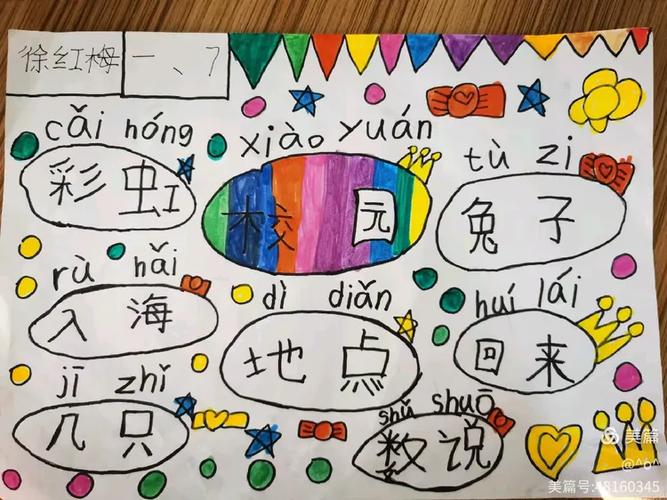 徐红梅 一、7
cǎi hóng
彩虹
xiào yuán
校园
tù zi
兔子
rù hǎi
入海
dì diǎn
地点
huí lái
回来
jī zhi
几只
shǔ shuō
数说
美篇
@^6^
美篇号:48160345